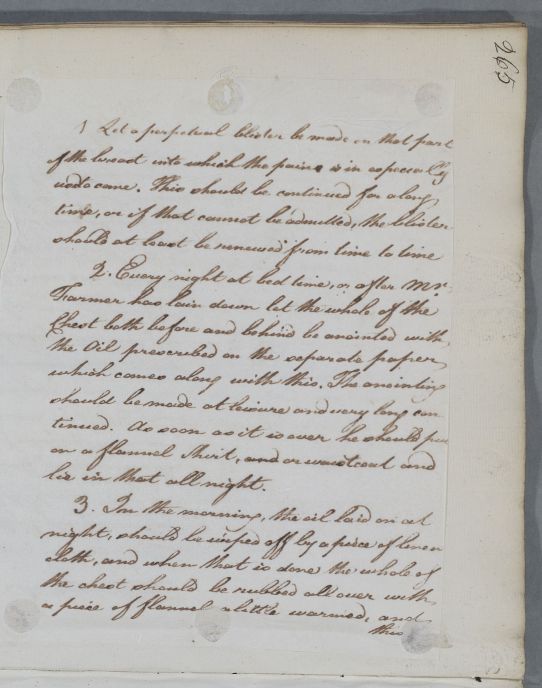 265
1 Let a perpetual blister be made on that part
of the breast into which the pains is in especially
used to come. This should be continued for a long
time, or if that cannot be admitted, the blister
should at least be renewed from time to time
2. Every night at bed time, or after Mr.
Farmer has lain down let the whole of the
Chest both before and behind be anointed with
the Oil prescribed on the separate paper
which comes along with this. The anointing
should be made at leisure and very long con
tinued. As soon as it is over he should put
on a flannel shirt, and or waistcoat and
lie in that all night.
3. In the morning, the oil laid on at
night, should be wiped off by a piece of linen
cloth, and when that is done the whole of
the chest should be rubbed all over with
a piece of flannel a little warmed, and
this